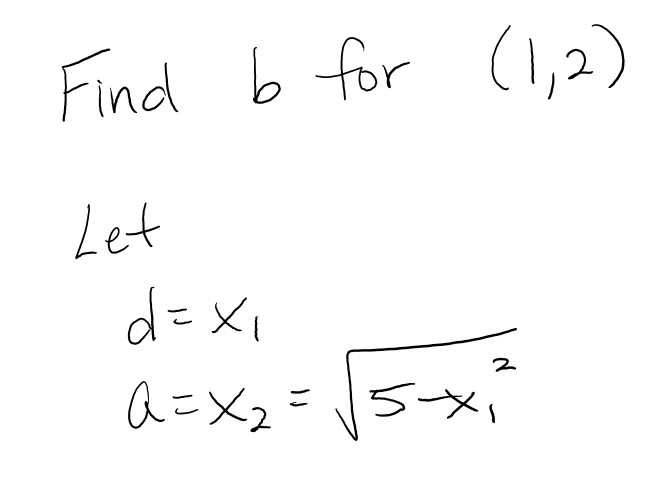 Find b for (1,2)
Let
d = x₁
a = x₂ = √(5-x₁²)